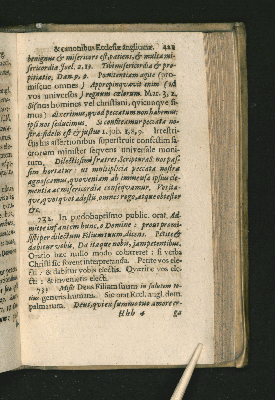 & canonibus Ecclesiæ anglicanæ. 421
benignus & misericors est, patiens, & multa mi-
sericordia Joel. 2. 13. Tibi misericordia & pro-
pitiatio, Dan. 9. 9. Pœnitentiam agite (oro-
miscue omnes) Appropinquavit enim (ad
vos universus) regnum cœlorum. Mat. 3, 2,
Si (nos homines vel christiani, quicunque si-
mus) dixerimus, quod peccatum non habemus
ipsi nos seducimus. Si confitemur peccata no-
stra: fidelis est & justus 1. joh. 1, 8, 9.
his assertionibus superstruit consulum
uorum minister sequens universale moni-
tum. Dilectissimi fratres. Scriptura S. nos pas-
sim hortatur: ut multiplicia peccata nostra
agnoscamus, quo veniam ab immensa ipsius cle-
mentia ac misericordia consequamur. Vos ita-
que, quotquot adestis omnes rogo, atque obtestor
&c.
732. In pædobaptismo public. orat. Ad-
mitte infantem hunc, o Domine: prout promi-
sisti per dilectum Filium tuum dicens. Petite &
dabitur vobis. Da itaque nobis, jam petentibus.
Oratio hæc nullo modo cohæreret: si verba
Christi sic forent interpretanda. Petite vos ele-
cti: & dabitur vobis electis. Quærite vos ele-
cti: & invenietis electi.
733. Misit Deus Filium suum in salutem to-
tius generis humani. Sic orat Eccl. angl. dom.
palmarum. Deus, qui ex summo tuo amore er-
Hhh 4 ga